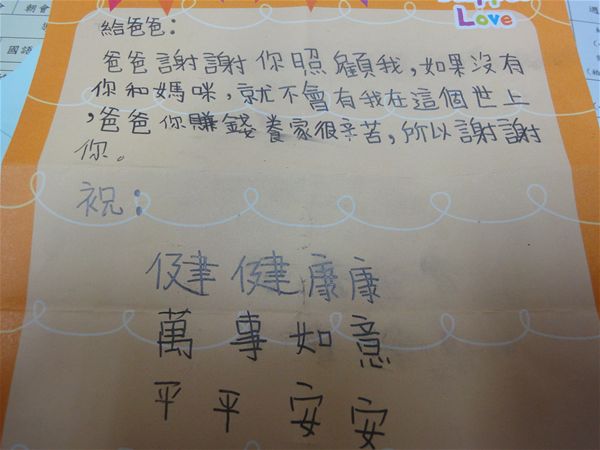 Love
給爸爸：
爸爸謝謝你照顧我，如果沒有
你和媽咪，就不會有我在這個世上
，爸爸你賺錢養家很辛苦，所以謝謝
你。
祝：
健健康康
萬事如意
平平安安
朝會
國語